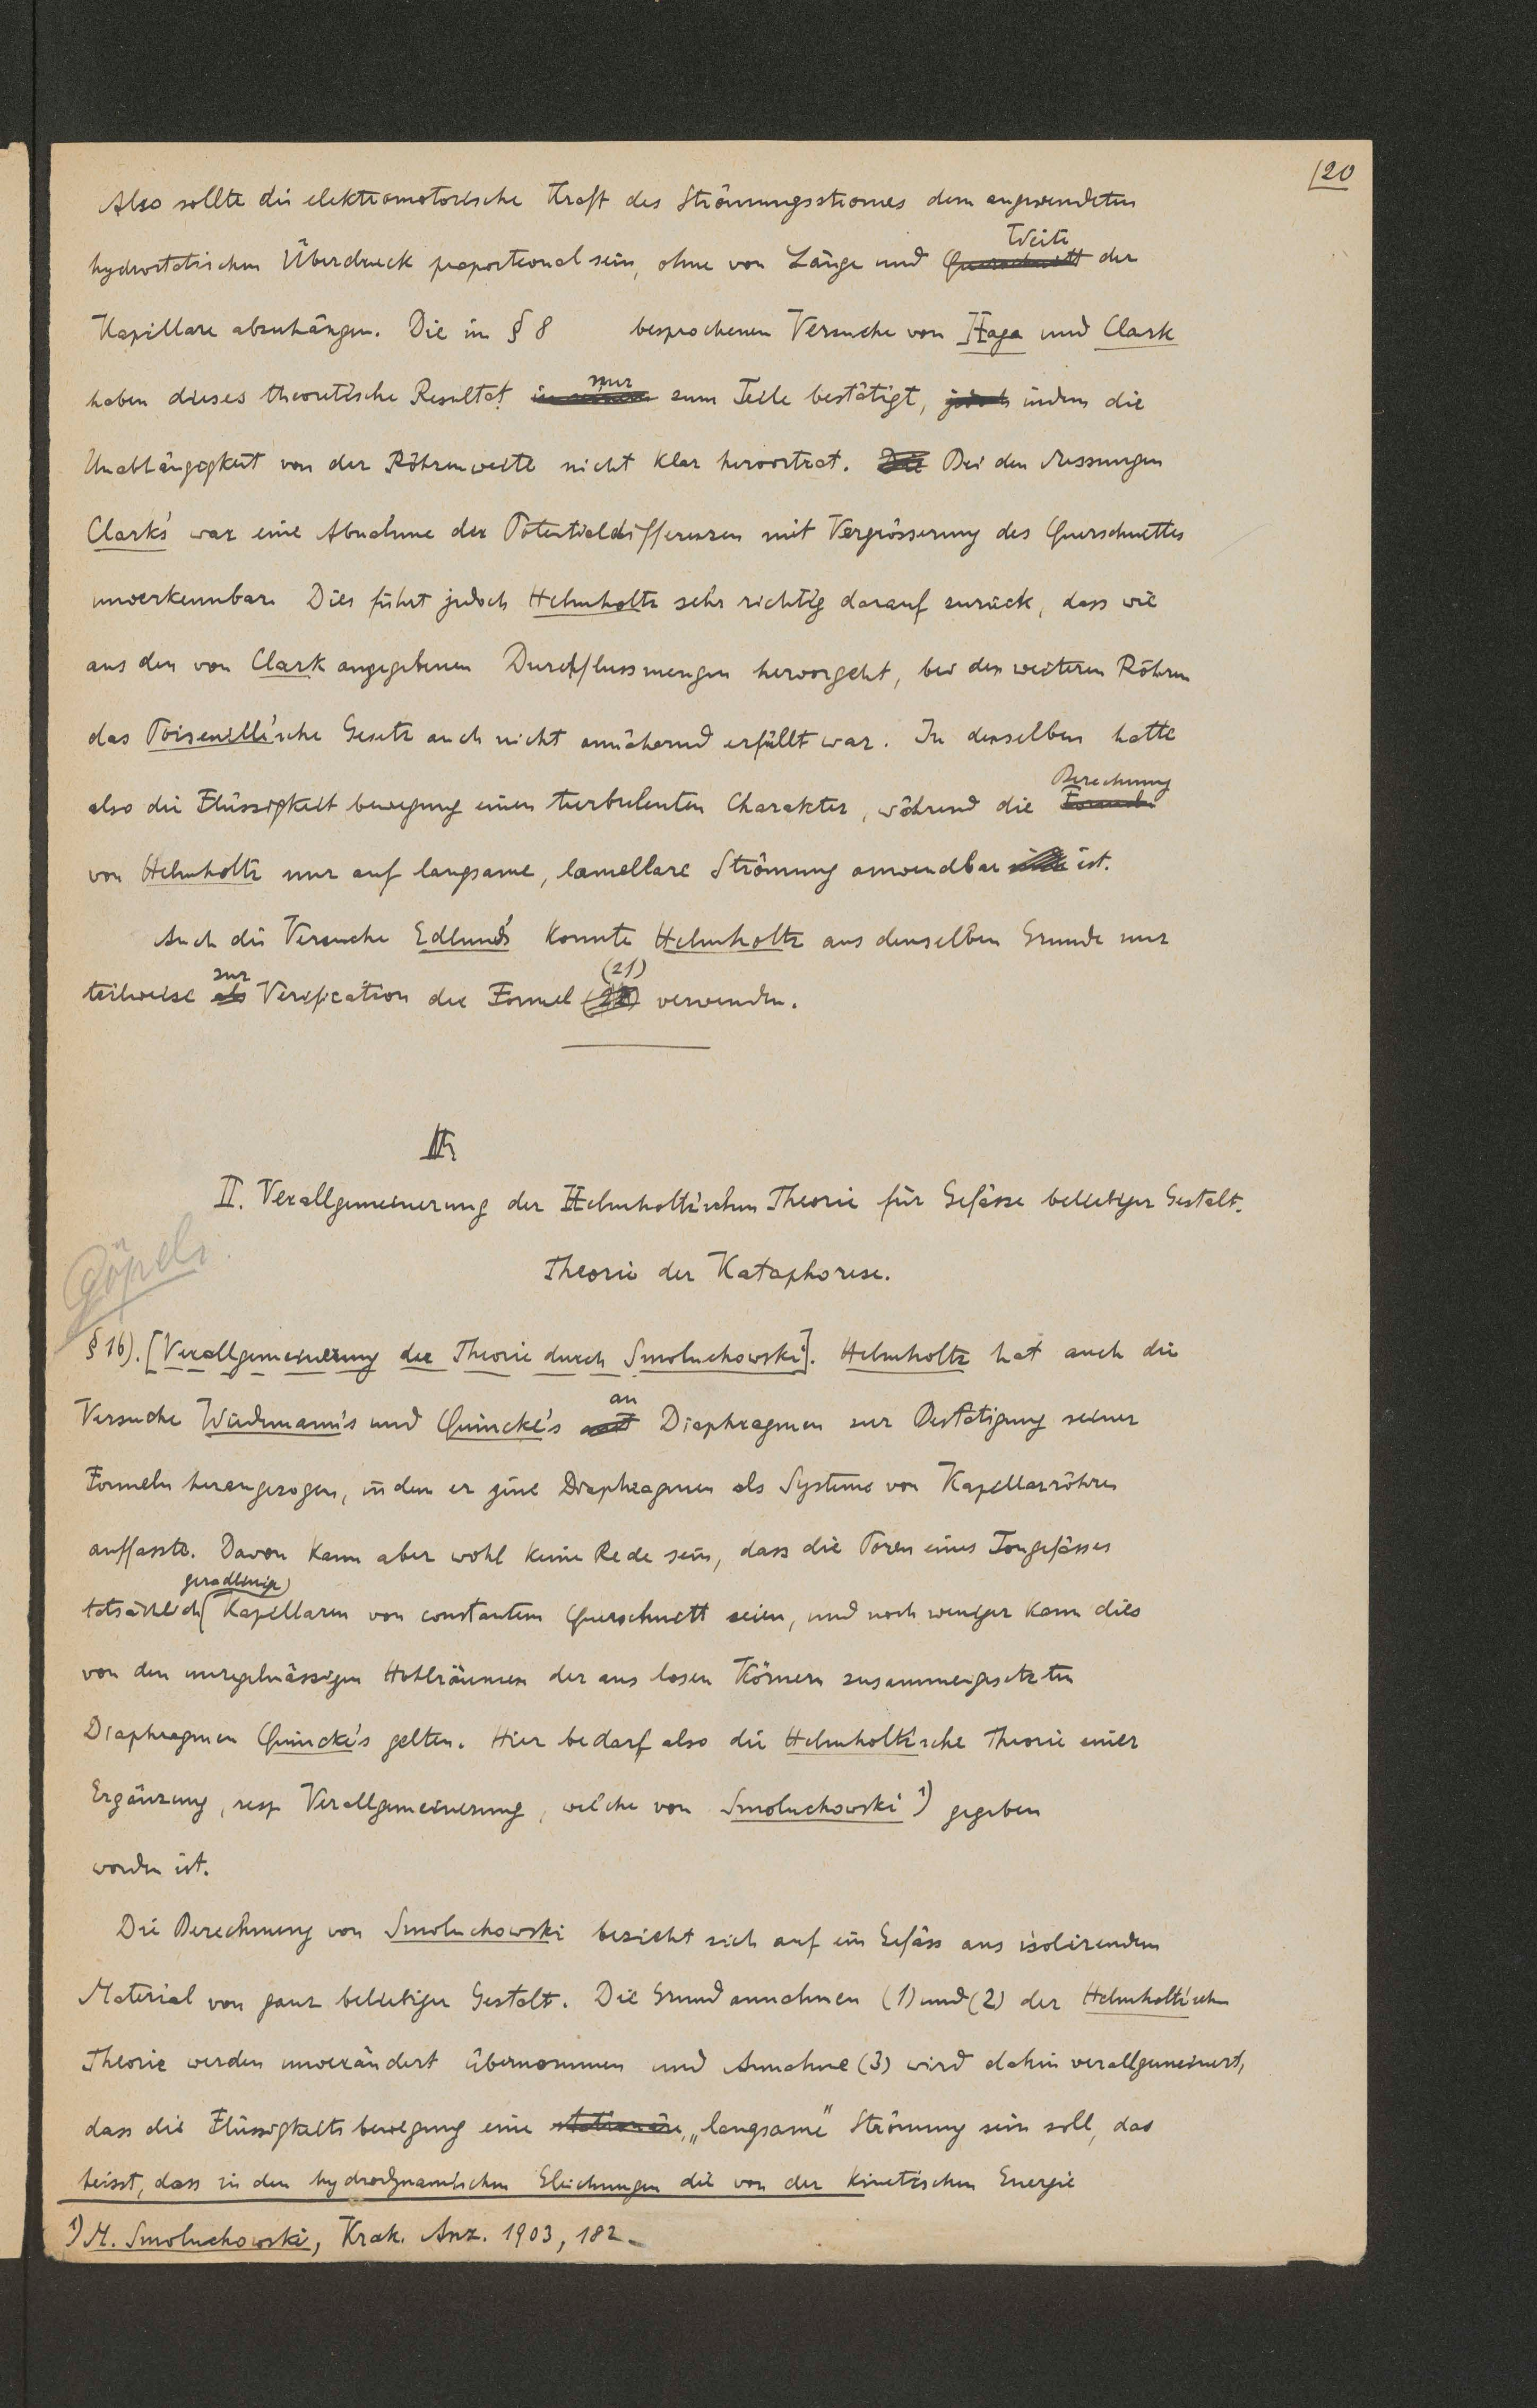 120
Also sollte die elektromotorische Kraft des Strömungsstromes dem angewendeten
hydrostatischen Überdruck proportional sein, ohne von Länge und Weite der
Kapillare abzuhängen. Die in § 8 besprochenen Versuche von Haga und Clark
haben dieses theoretische Resultat nur zum Teile bestätigt, indem die
Unabhängigkeit von der Röhrenweite nicht klar hervortrat. Bei den Messungen
Clark's war eine Abnahme der Potentialdifferenzen mit Vergrösserung des Querschnittes
unverkennbar. Dies führt jedoch Helmholtz sehr richtig darauf zurück, dass wie
aus den von Clark angegebenen Durchflussmengen hervorgeht, bei den weiteren Röhren
das Poiseuille'sche Gesetz auch nicht annähernd erfüllt war. In denselben hatte
also die Flüssigkeitbewegung einen turbulenten Charakter, während die Berechnung
von Helmholtz nur auf langsame, lamellare Strömung anwendbar ist.
Auch die Versuche Edlund's konnte Helmholtz aus demselben Grunde nur
teilweise zur Verification der Formel (21) verwenden.
II. Verallgemeinerung der Helmholtz'schen Theorie für Gefässe beliebiger Gestalt.
Theorie der Kataphorese.
§ 16). [Verallgemeinerung der Theorie durch Smoluchowski]. Helmholtz hat auch die
Versuche Wiedemann's und Quincke's an Diaphragmen zur Bestätigung seiner
Formeln herangezogen, indem er jene Diaphragmen als Systeme von Kapillarröhren
auffasste. Davon kann aber wohl keine Rede sein, dass die Poren eines Tongefässes
tatsächlich geradlinige Kapillaren von constantem Querschnitt seien, und noch weniger kann dies
von den unregelmässigen Hohlräumen der aus losen Körnern zusammengesetzten
Diaphragmen Quincke's gelten. Hier bedarf also die Helmholtz'sche Theorie einer
Ergänzung, resp Verallgemeinerung, welche von Smoluchowski 1) gegeben
worden ist.
Die Berechnung von Smoluchowski bezieht sich auf ein Gefäss aus isolirendem
Material von ganz beliebiger Gestalt. Die Grundannahmen (1) und (2) der Helmholtz'schen
Theorie werden unverändert übernommen und Annahme (3) wird dahin verallgemeinert,
dass die Flüssigkeitsbewegung eine „langsame" Strömung sein soll, das
heisst, dass in den hydrodynamischen Gleichungen die von der kinetischen Energie
1) M. Smoluchowski, Krak. Anz. 1903, 182.